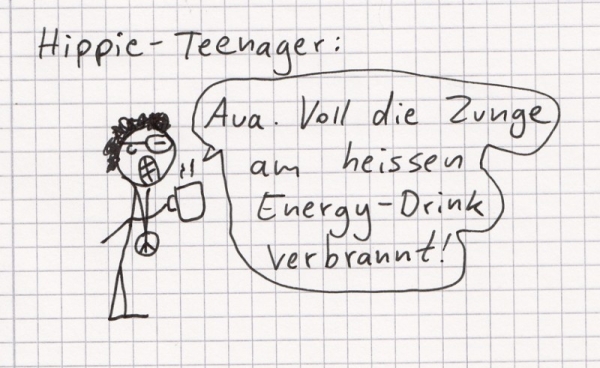 Hippie-Teenager:
Aua. Voll die Zunge
am heissen
Energy-Drink
verbrannt!